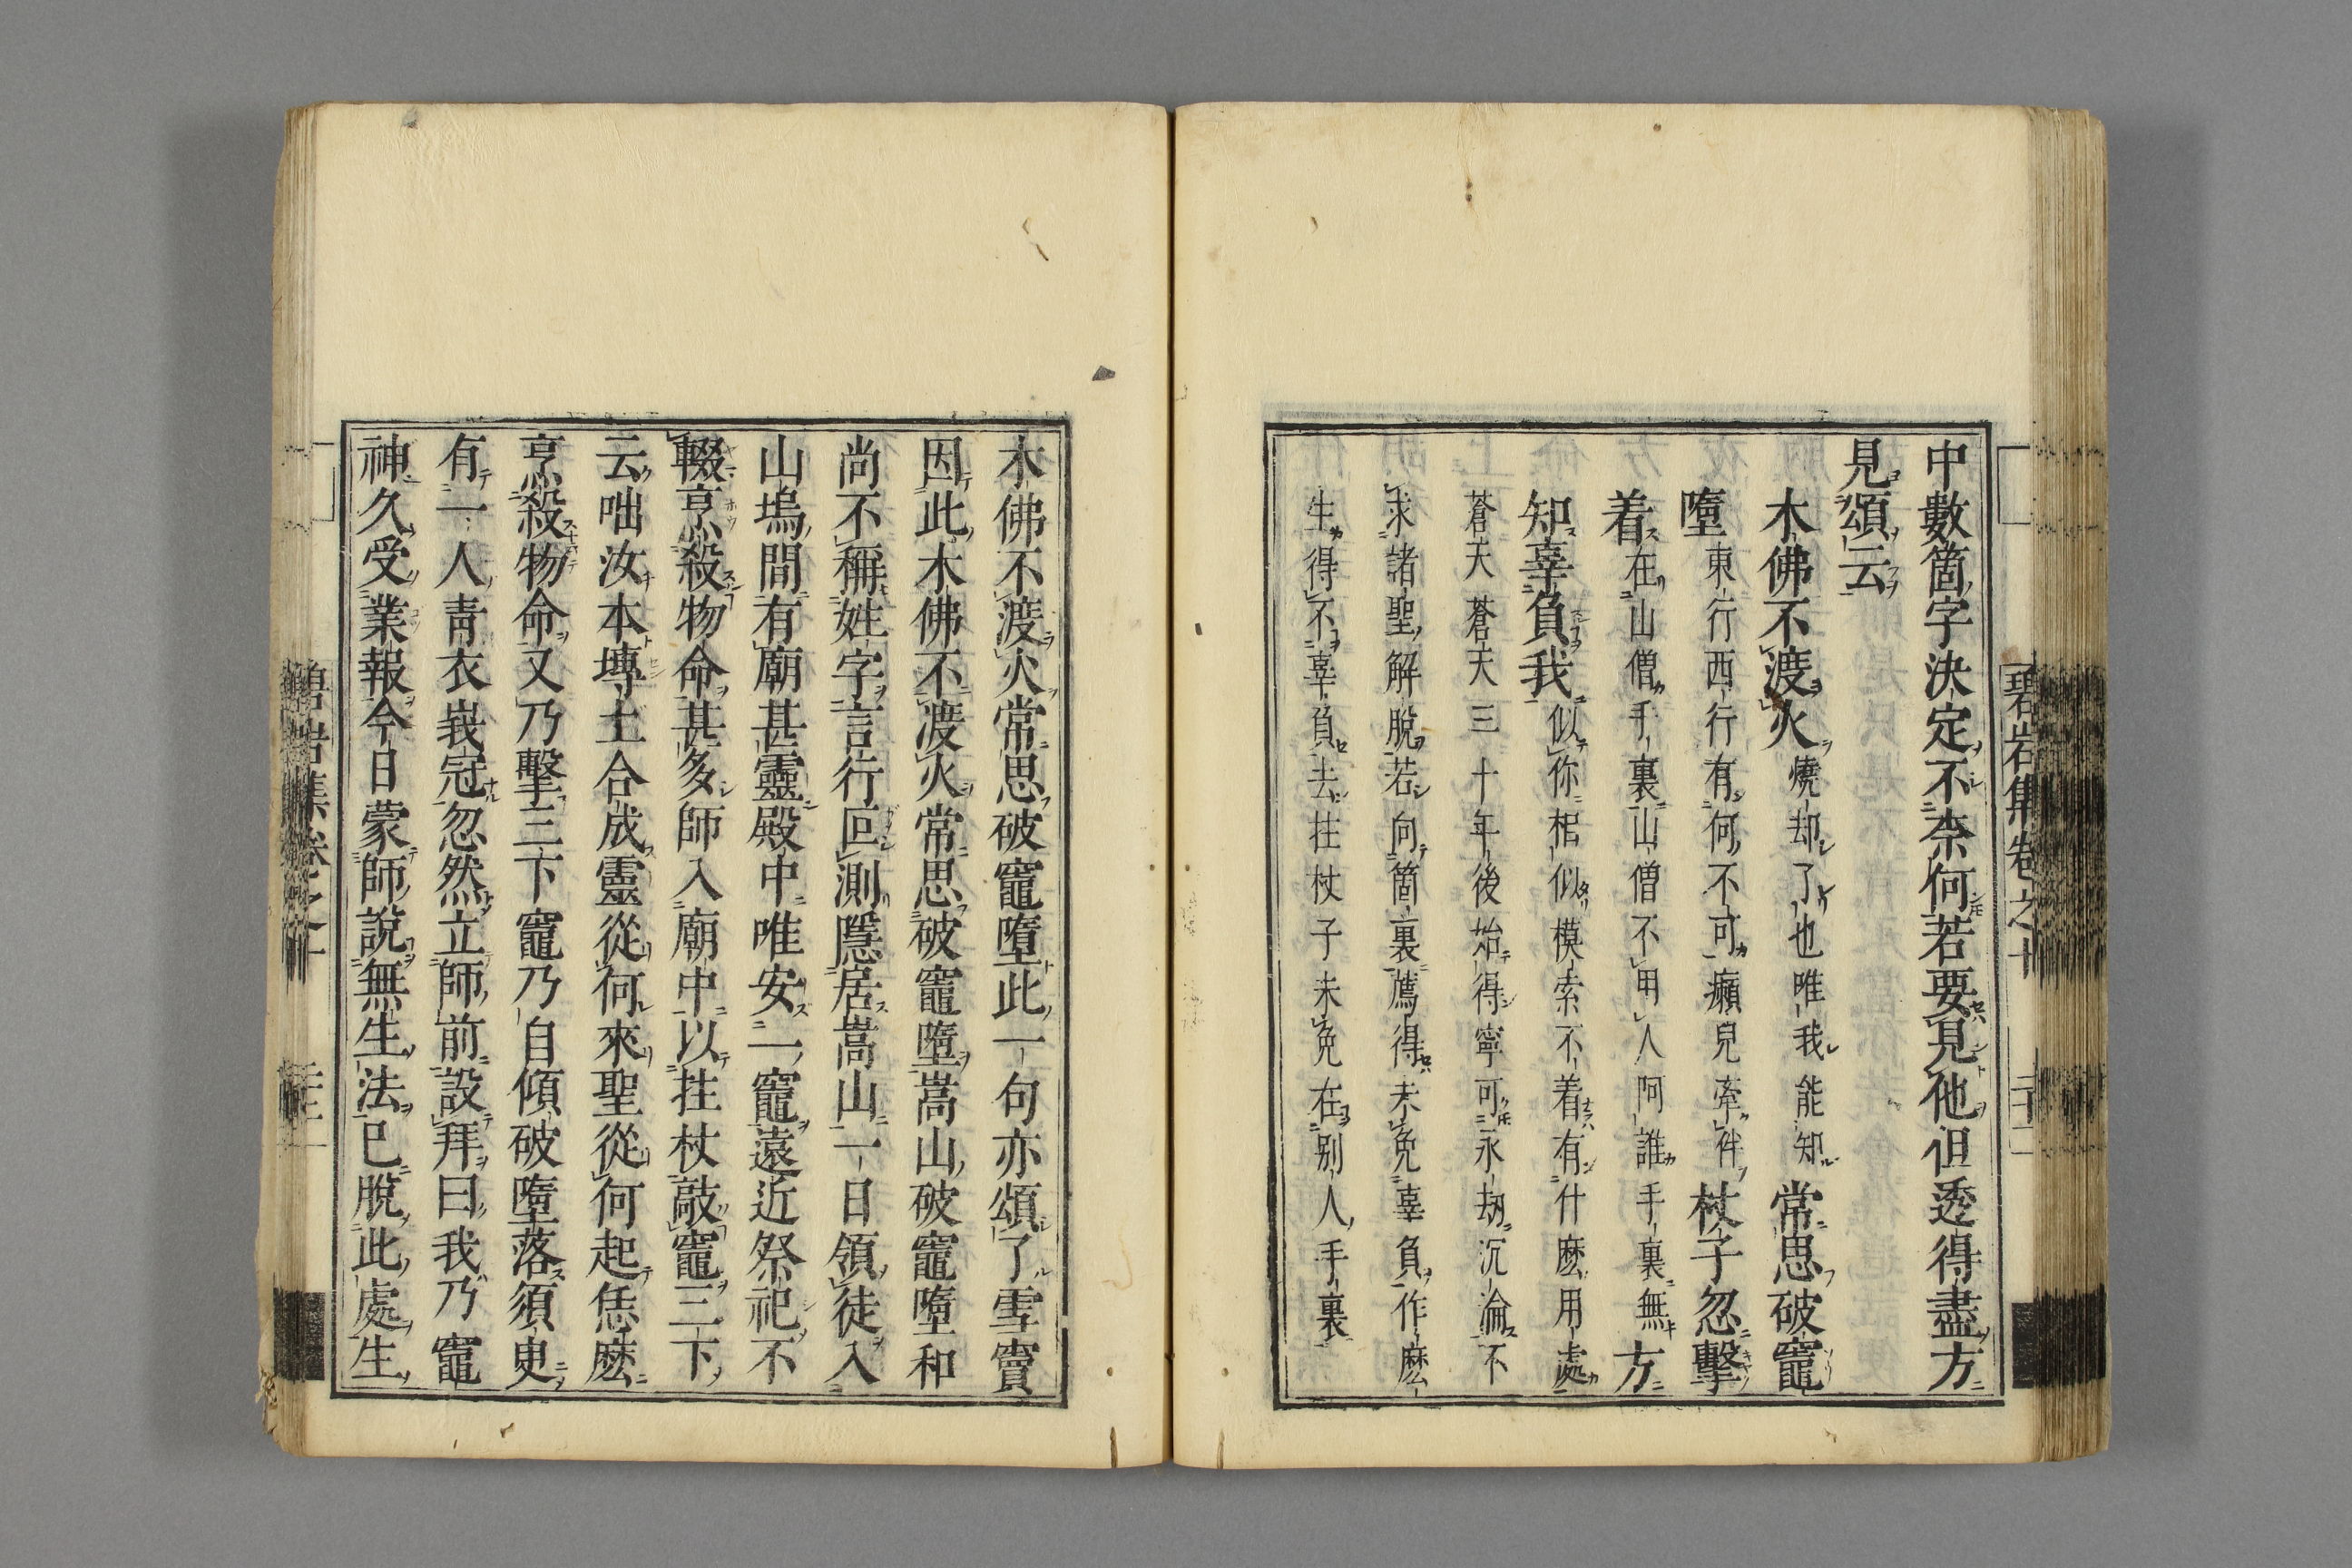 碧岩集卷之十
中數箇字決定不柰何若要見他但透得盡方
見頌云
木佛不渡火燒却了也唯我能知常思破竈
墮東行西行有何不可癩兒牽伴杖子忽擊
着在山僧手裏山僧不用人阿誰手裏無方
知辜負我似你相似模索不着有什麼用處
蒼天蒼天三十年後始得寧可永劫沉淪不
求諸聖解脫若向箇裏薦得未免辜負作麼
生得不辜負去拄杖子未免在別人手裏
木佛不渡火常思破竈墮此一句亦頌了雪竇
因此木佛不渡火常思破竈墮嵩山破竈墮和
尚不稱姓字言行叵測隱居嵩山一日領徒入
山塢間有廟甚靈殿中唯安一竈遠近祭祀不
輟烹殺物命甚多師入廟中以拄杖敲竈三下
云咄汝本塼土合成靈從何來聖從何起恁麼
烹殺物命又乃擊三下竈乃自傾破墮落須臾
有一人靑衣峩冠忽然立師前設拜曰我乃竈
神久受業報今日蒙師說無生法已脫此處生